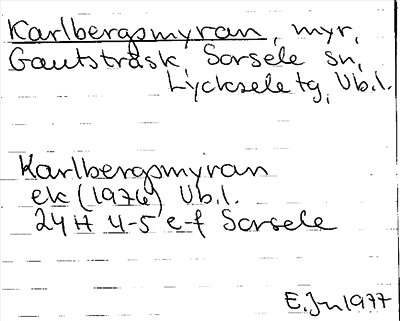 Karlbergsmyran, myr,
Gautsträsk, Sorsele sn,
Lycksele tg, Vb.l.
Karlbergsmyran
ek (1976) Vb.l.
24H 4-5 e-f Sorsele
E.Jn 1977